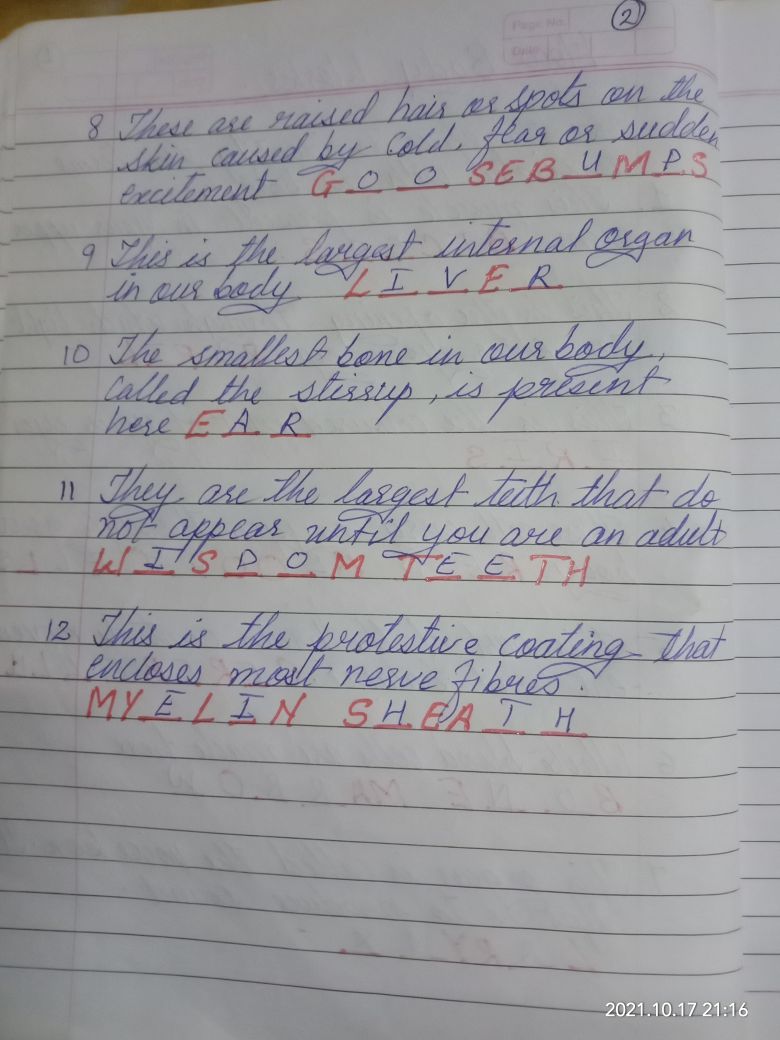 Page No.
Date
2
8 These are raised hair or spots on the
skin caused by cold, fear or sudden
excitement G O O SEBUMPS
9 This is the largest internal organ
in our body L I V E R
10 The smallest bone in our body,
called the stirrup, is present
here E A R
11 They are the largest teeth that do
not appear until you are an adult
W I S D O M T E E T H
12 This is the protective coating that
encloses most nerve fibres.
MYELIN SHEATH
2021.10.17 21:16